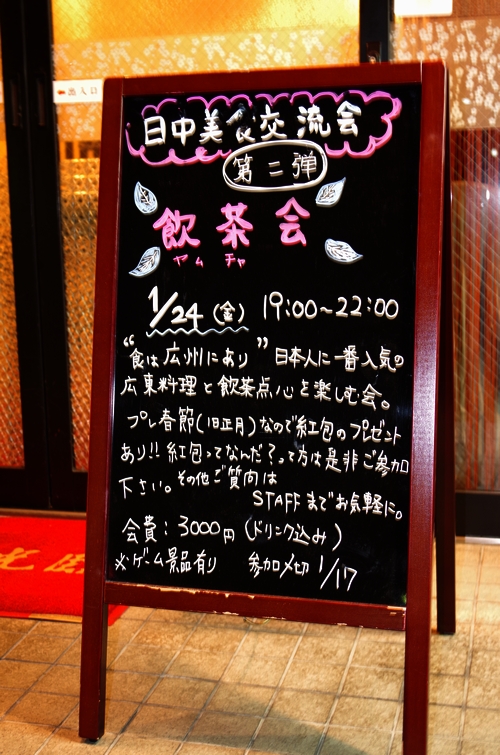 ←出入口
日中美食交流会
第二弾
飲茶会
ヤムチャ
1/24(金) 19:00~22:00
"食は広州にあり" 日本人に一番人気の
広東料理と飲茶点心を楽しむ会。
プレ春節(旧正月)なので紅包のプレゼント
あり!! 紅包ってなんだ?って方は是非ご参加
下さい。その他ご質問は
STAFFまでお気軽に。
会費:3000円(ドリンク込み)
※ゲーム景品有り 参加〆切 1/17